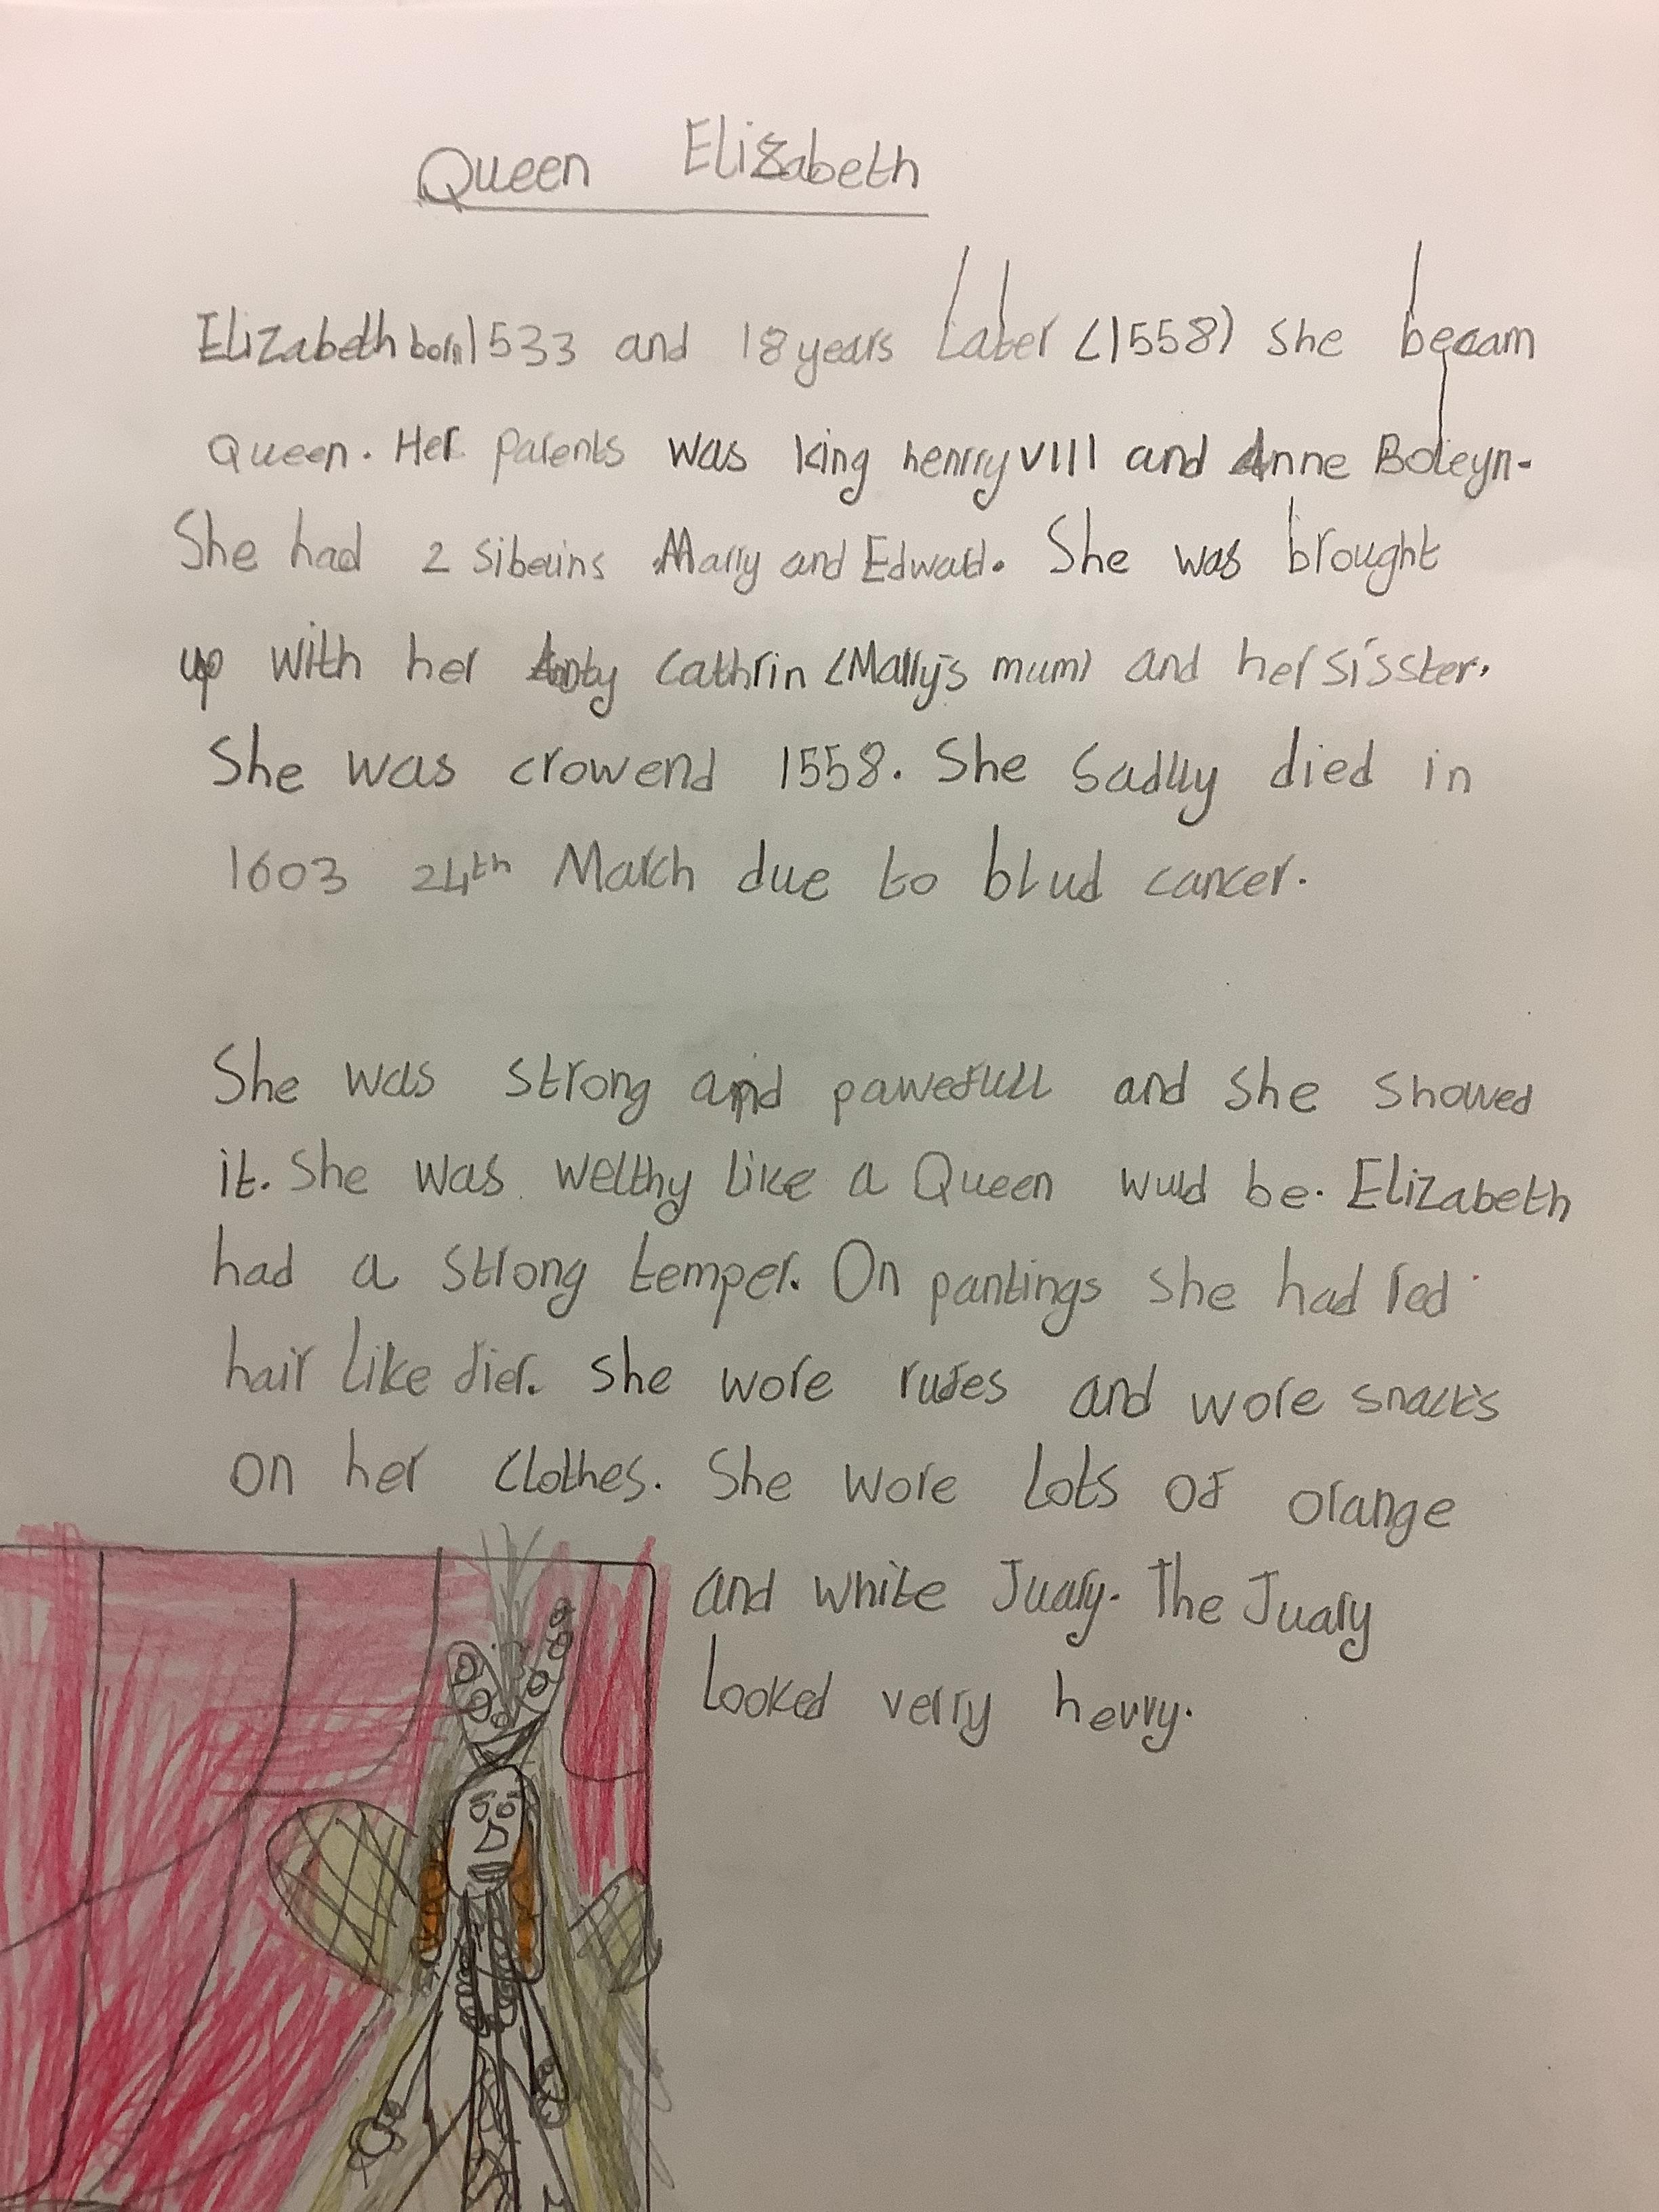 Queen Elizabeth
Elizabeth born 1533 and 18 years Later (1558) she becam
Queen. Her parents was king henrry VIII and Anne Boleyn.
She had 2 sibeuins Marry and Edward. She was brought
up with her Anty Cathrin (Marry's mum) and her sisster.
She was crowend 1558. She Sadlly died in
1603 24th March due to blud cancer.
She was strong and pawefull and she showed
it. She was welthy like a Queen wud be. Elizabeth
had a strong temper. On pantings she had red
hair like fier. she wore rufes and wore snacks
on her clothes. She wore Lots of orange
and white Juary. The Juary
Looked verry hevvy.